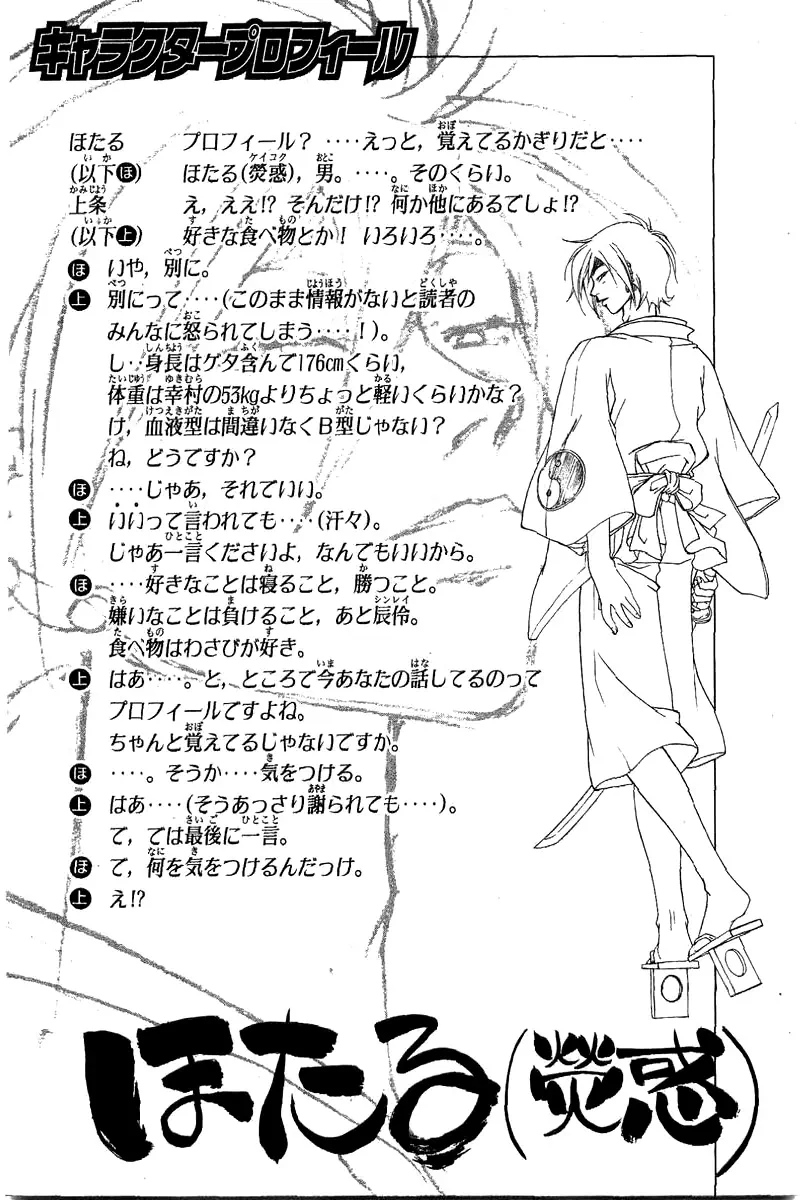 キャラクタープロフィール
ほたる プロフィール？ ‥‥えっと，覚えてるかぎりだと‥‥
(以下ほ) ほたる(熒惑)，男。‥‥。そのくらい。
上条 え，ええ!? そんだけ!? 何か他にあるでしょ!?
(以下上) 好きな食べ物とか！ いろいろ‥‥。
ほ いや，別に。
上 別にって‥‥(このまま情報がないと読者の
みんなに怒られてしまう‥‥！)。
し‥身長はゲタ含んで176cmくらい，
体重は幸村の53kgよりちょっと軽いくらいかな？
け，血液型は間違いなくＢ型じゃない？
ね，どうですか？
ほ ‥‥じゃあ，それでいい。
上 いいって言われても‥‥(汗々)。
じゃあ一言くださいよ，なんでもいいから。
ほ ‥‥好きなことは寝ること，勝つこと。
嫌いなことは負けること，あと辰伶。
食べ物はわさびが好き。
上 はあ‥‥。と，ところで今あなたの話してるのって
プロフィールですよね。
ちゃんと覚えてるじゃないですか。
ほ ‥‥。そうか‥‥気をつける。
上 はあ‥‥(そうあっさり謝られても‥‥)。
て，では最後に一言。
ほ で，何を気をつけるんだっけ。
上 え!?
ほたる(熒惑)